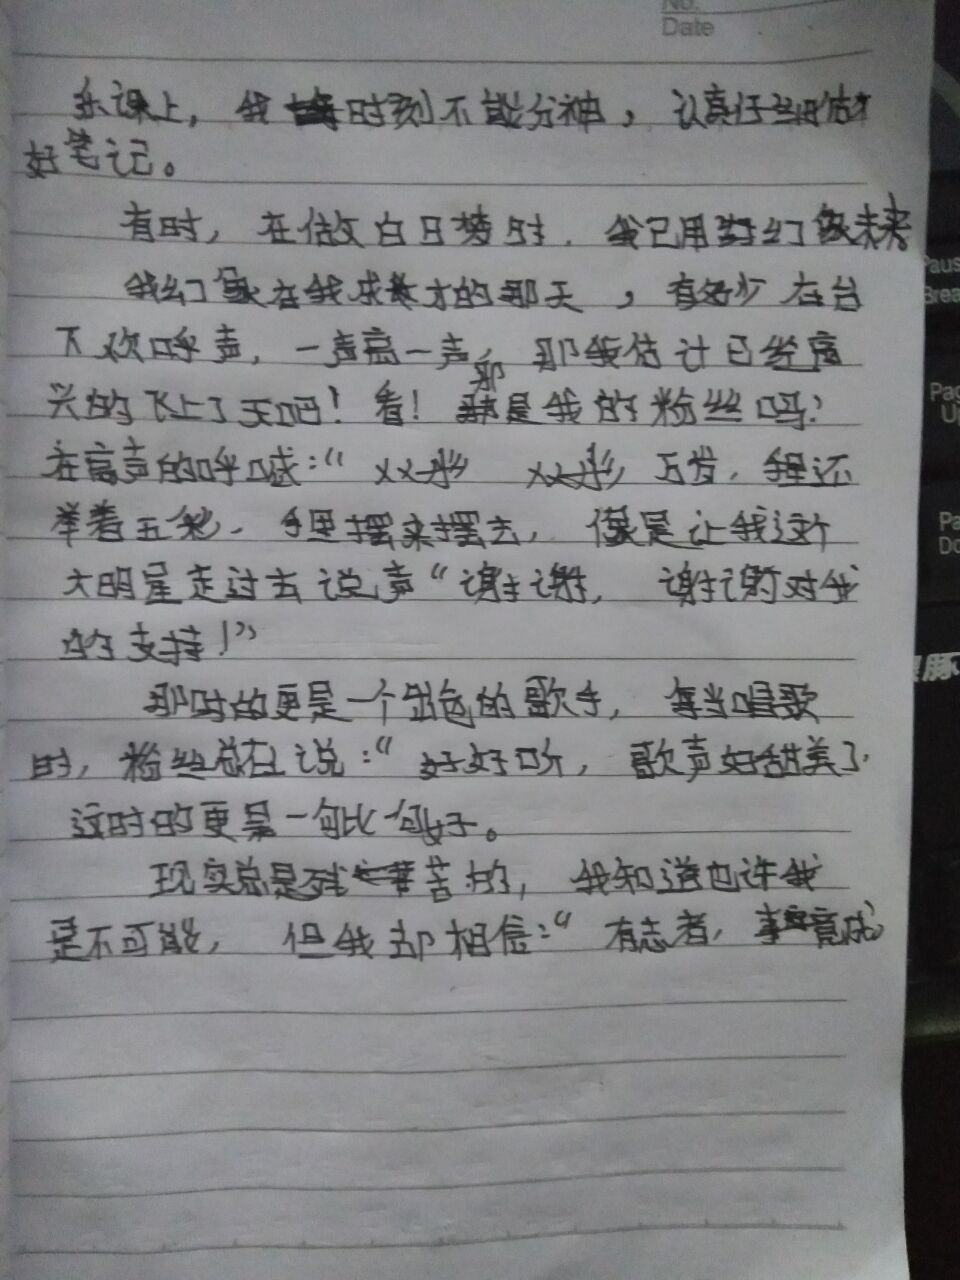 No.
Date
乐课上，我时刻不能分神，认真仔细做
好笔记。
有时，在做白日梦时，我已用梦幻像未来
我幻像在我成名才的那天，有多少在台
下欢呼声，一声高一声，那我估计已经高
兴的飞上了天吧！看！那是我的粉丝吗？
在高声的呼喊：“XX形 XX形，万岁，手里还
举着五彩，手里摆来摆去，像是让我这个
大明星走过去说声“谢谢，谢谢对我
的支持！”
那时的更是一个出色的歌手，每当唱歌
时，粉丝总在说：“好好听，歌声好甜美了.
这时的更是一句比一句好。
现实总是残苦的，我知道也许我
是不可能，但我却相信：“有志者，事竟成
Paus
Brea
Pag
Up
Pa
Do